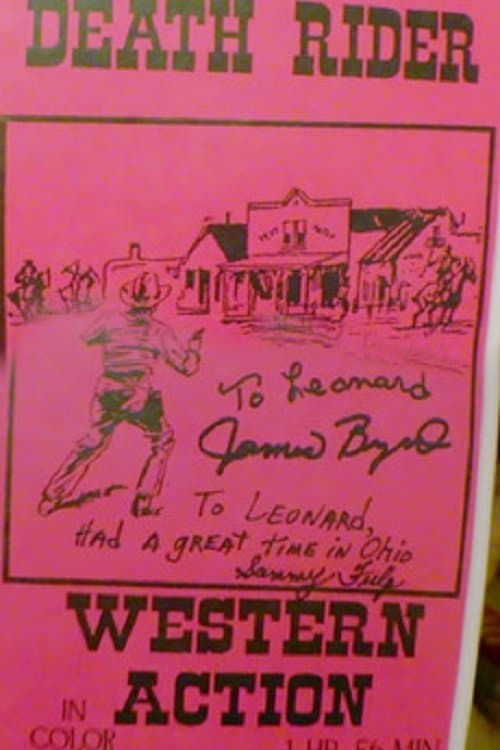 DEATH RIDER
To Leonard
James Byrd
To LEONARD,
HAd A gREAT TiME iN Ohio
Sammy Fulp
WESTERN
ACTION
IN
COLOR
1 HR. 56 MIN